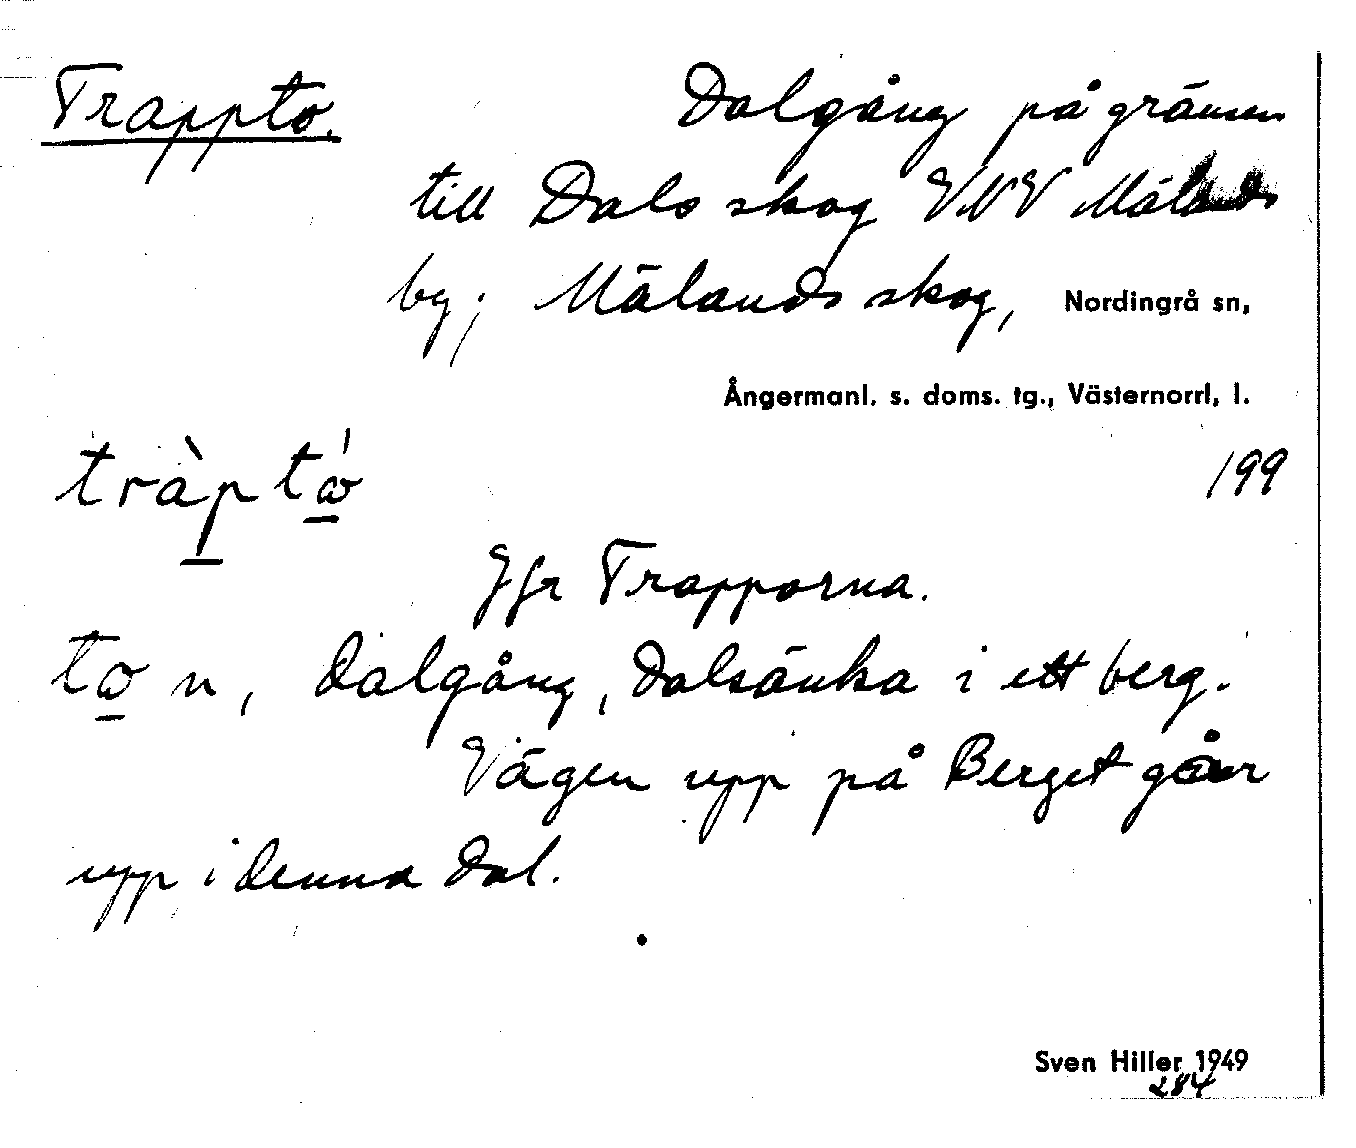 Trappto. Dalgång på gränsen
till Dals skog VNV Mälands
by; Mälands skog, Nordingrå sn,
Ångermanl. s. doms. tg., Västernorrl, l.
tràp tɷ́ 199
Jfr Trapporna.
tɷ n, dalgång, dalsänka i ett berg.
Vägen upp på Berget går
upp i denna dal.
Sven Hiller 1949
284